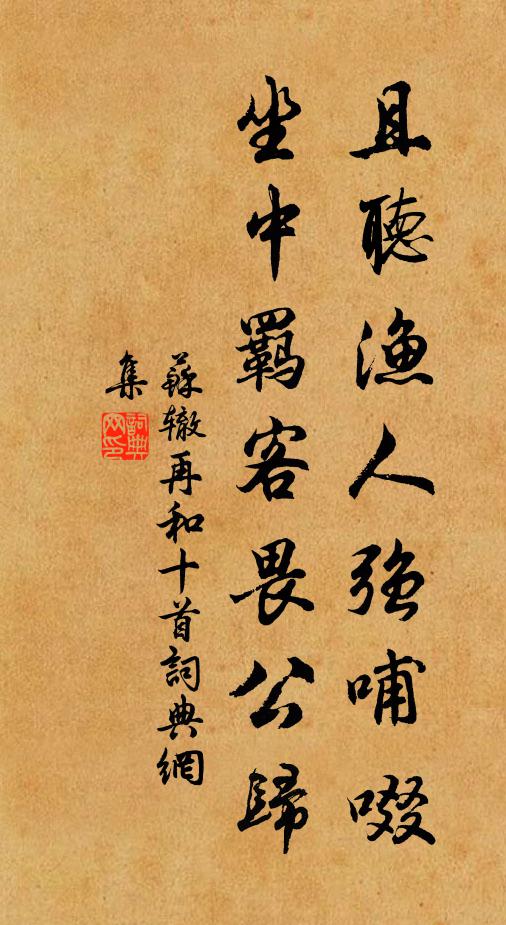 且聽漁人強哺啜
坐中羇客畏公歸
蘇辙再和十首詞典網
集
詞典网印